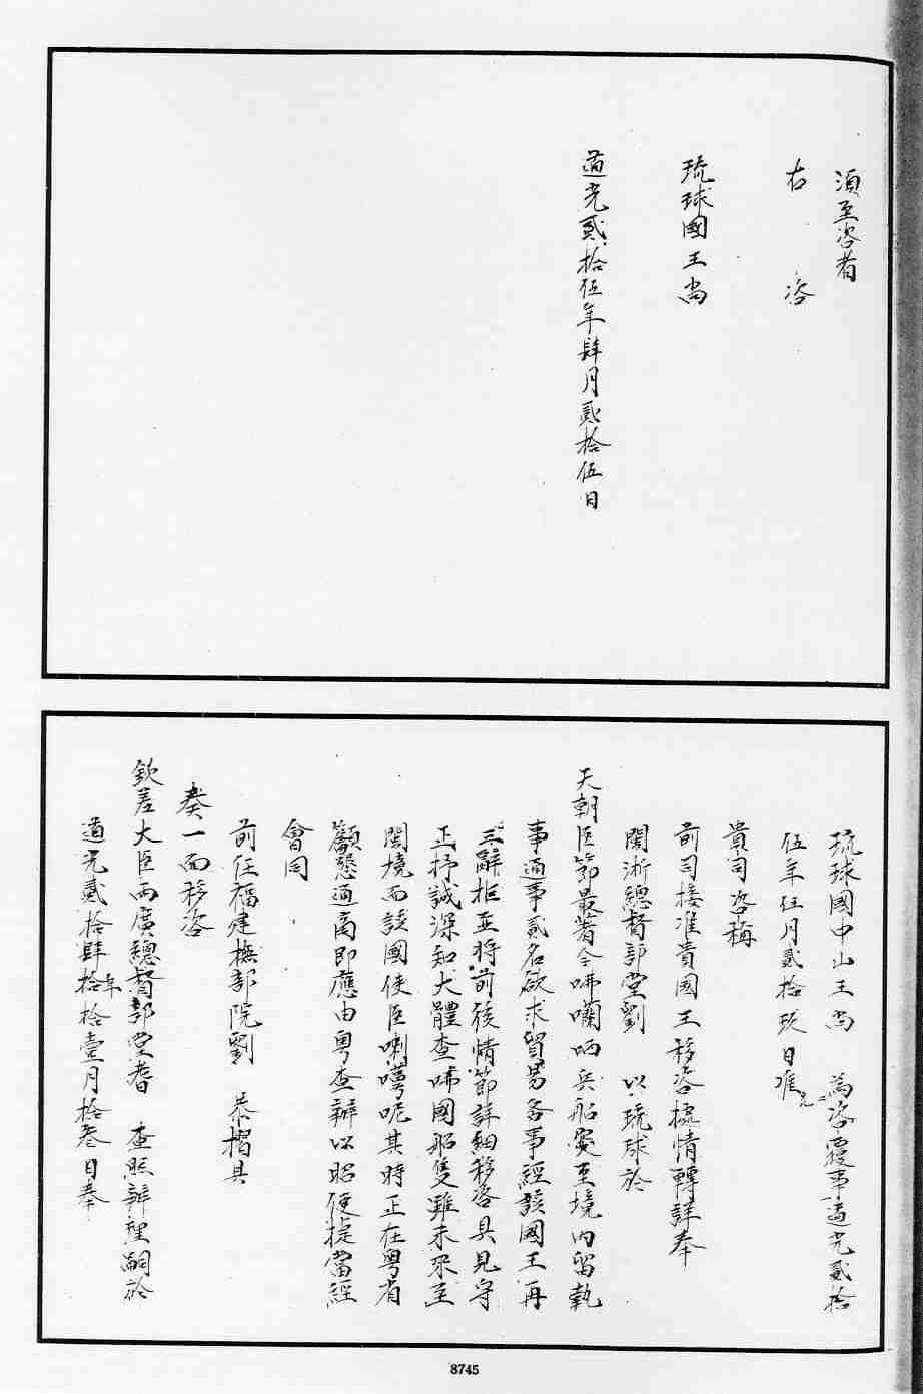 須至咨者
右　咨
琉球國王尚
道光貳拾伍年肆月貳拾伍日
琉球國中山王尚　為咨覆事道光貳拾
伍年伍月貳拾玖日准
貴司咨稱
前司接准貴國王移咨據情轉詳奉
閩浙總督部堂劉　以琉球於
天朝臣節最著今咈囒哂兵船突至境內留執
事通事貳名欲求貿易各事經該國王再
三辭拒並將前後情節詳細移咨具見守
正抒誠深知大體查咈國船隻雖未來至
閩境而該國使臣喇嘮呢其時正在粵省
籲懇通商即應由粵查辦以昭便捷當經
會同
前任福建撫部院劉　恭摺具
奏一面移咨
欽差大臣兩廣總督部堂耆　查照辦理嗣於
道光貳拾肆年拾壹月拾叁日奉
8745